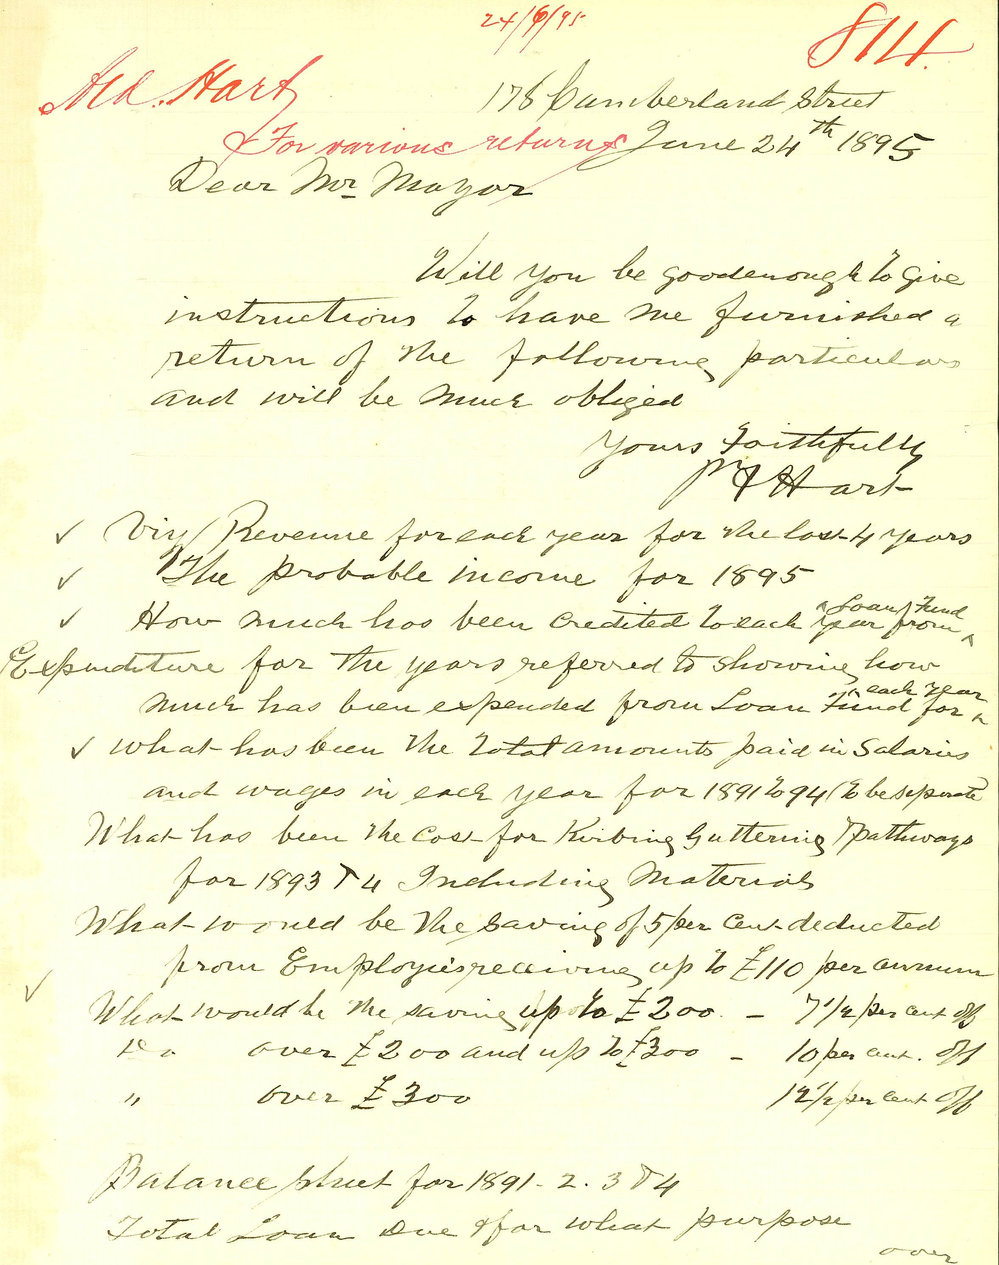 24/6/95
814.
Ald. Hart
178 Cumberland Street
For various returns
June 24th 1895
Dear Mr Mayor
Will you be good enough to give
instructions to have me furnished a
return of the following particulars
and will be much obliged
Yours Faithfully
Hart
✓ Viz/ Revenue for each year for the last 4 years
✓ The probable income for 1895
✓ How much has been credited to each ^ Loan Fund year from ^
Expenditure for the years referred to showing how
much has been expended from Loan Fund for ^ each year
✓ What has been the total amounts paid in Salaries
and wages in each year for 1891 to 94 (to be separate)
What has been the cost for Kirbing Guttering & pathways
for 1893 & 4 Including Materials
What would be the saving of 5 per cent deducted
from Employeis receiving up to £110 per annum
✓
What would be the saving up to £200. - 7 1/2 per cent off
Do over £200 and up to £300 - 10 per cent. off
" over £300 12 1/2 per cent off
Balance sheet for 1891-2.3 & 4
Total Loan Due & for what purpose
over